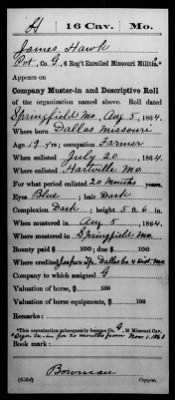 H | 16 Cav. | Mo.
James Hawk
Pvt., Co. G, 6 Reg't Enrolled Missouri Militia.*
Appears on
Company Muster-in and Descriptive Roll
of the organization named above. Roll dated
Springfield Mo, Aug 5, 1864.
Where born Dallas Missouri
Age 19 y'rs; occupation Farmer
When enlisted July 20, 1864.
Where enlisted Hartville Mo.
For what period enlisted 20 months years.
Eyes Blue; hair Dark
Complexion Dark; height 5 ft. 6 in.
When mustered in Aug 5, 1864.
Where mustered in Springfield Mo.
Bounty paid $ 100; due $ 100
Where credited Dallas Co 4 Dist. Mo.
Company to which assigned G
Valuation of horse, $ 100
Valuation of horse equipments, $ 100
Remarks:
*This organization subsequently became Co. G, 16 Missouri Cav.
for 20 months from Nov. 1, 1863
Book mark:
Bowman
Copyist.